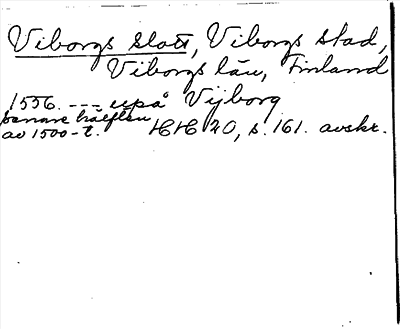 Viborgs slott, Viborgs stad,
Viborgs län, Finland
1556. --- uupå Vijborg
senare hälften
av 1500-t. HH 20, s. 161. avskr.